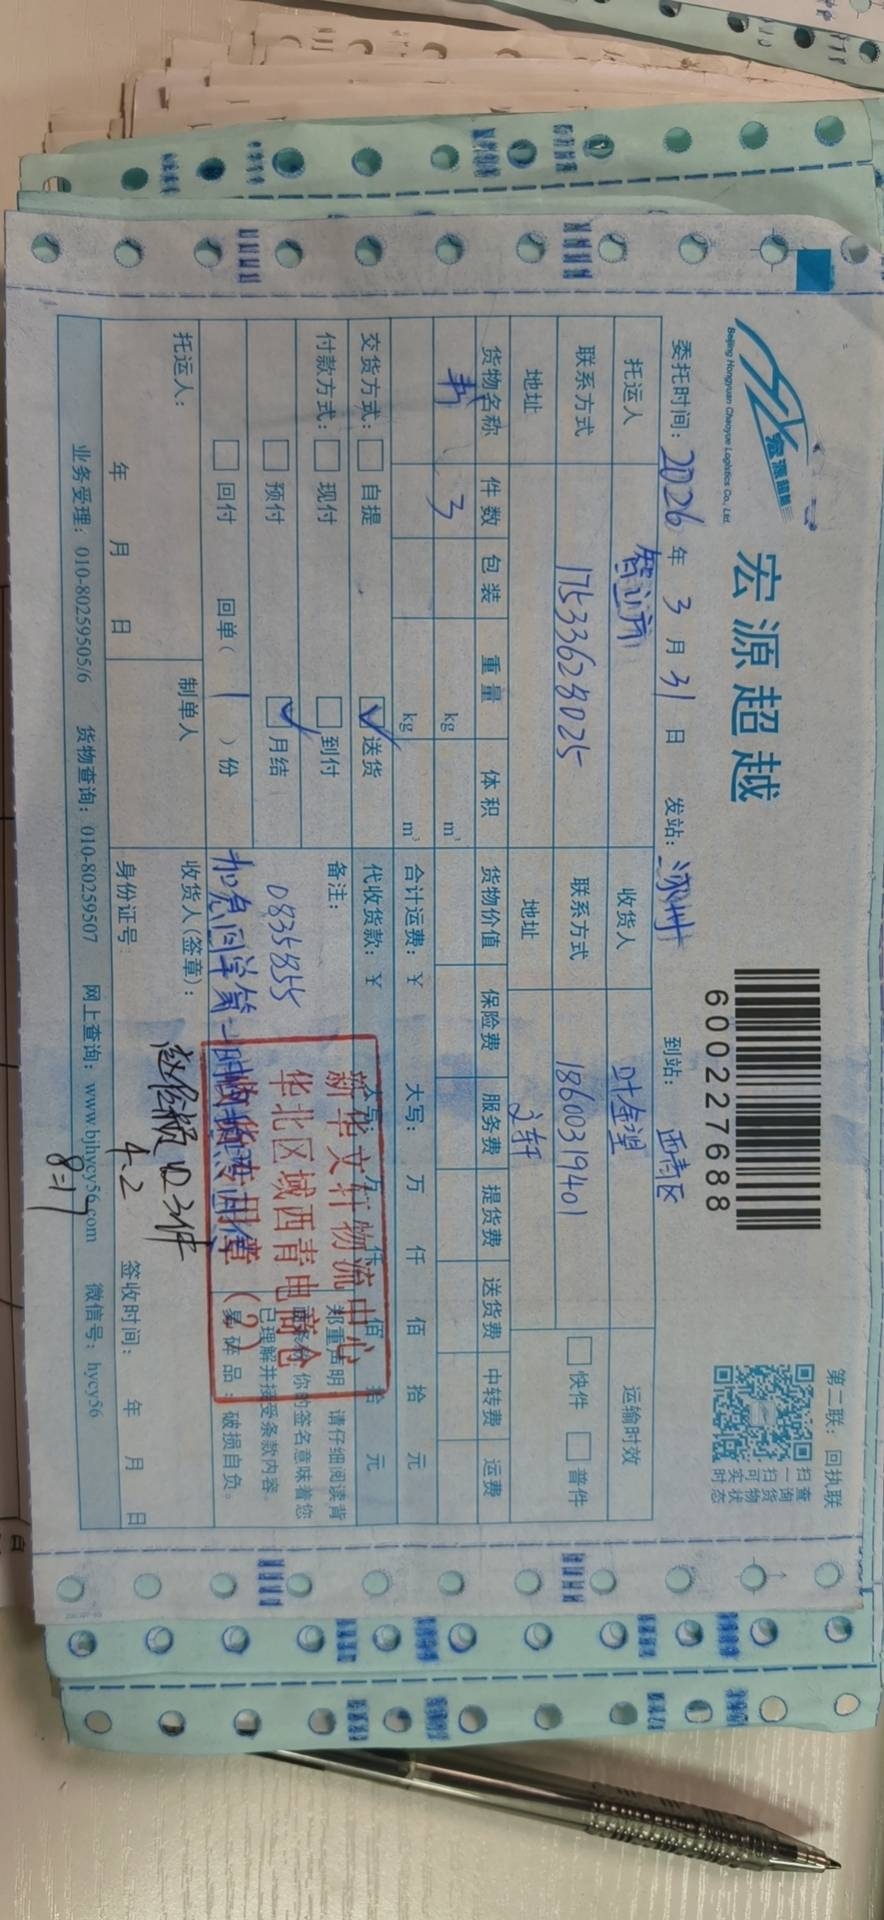 宏源超越
Beijing Hongyuan Chaoyue Logistics Co., Ltd.
宏源超越
600227688
第二联：回执联
扫查
一询
扫货
可物
实状
时态
委托时间：2026年3月31日 发站：涿州 到站：西青区
托运人 智立方 收货人 叶金望 运输时效
联系方式 17533628025 联系方式 18600319401 □快件 □普件
地址 地址 文轩
货物名称 件数 包装 重量 体积 货物价值 保险费 服务费 提货费 送货费 中转费 运费
书 3 kg m³
kg m³ 合计运费：￥ 大写： 万 仟 佰 拾 元
交货方式：□自提 ☑送货 代收货款：￥ 大写： 万 仟 佰 拾 元
付款方式：□现付 □到付 备注：
□预付 ☑月结 0835855
□回付 回单（1）份 加急回单第一时
郑重声明：请仔细阅读背
面条款，你的签名意味着您
已理解并接受条款内容。
易碎品：破损自负。
新华文轩物流中心
华北区域西青电商仓
收货专用章（2）
托运人： 制单人 收货人(签章)：
收3件
年 月 日 身份证号 4.2 签收时间： 年 月 日
8:17
业务受理：010-80259505/6 货物查询：010-80259507 网上查询：www.bjhycy56.com 微信号：hycy56